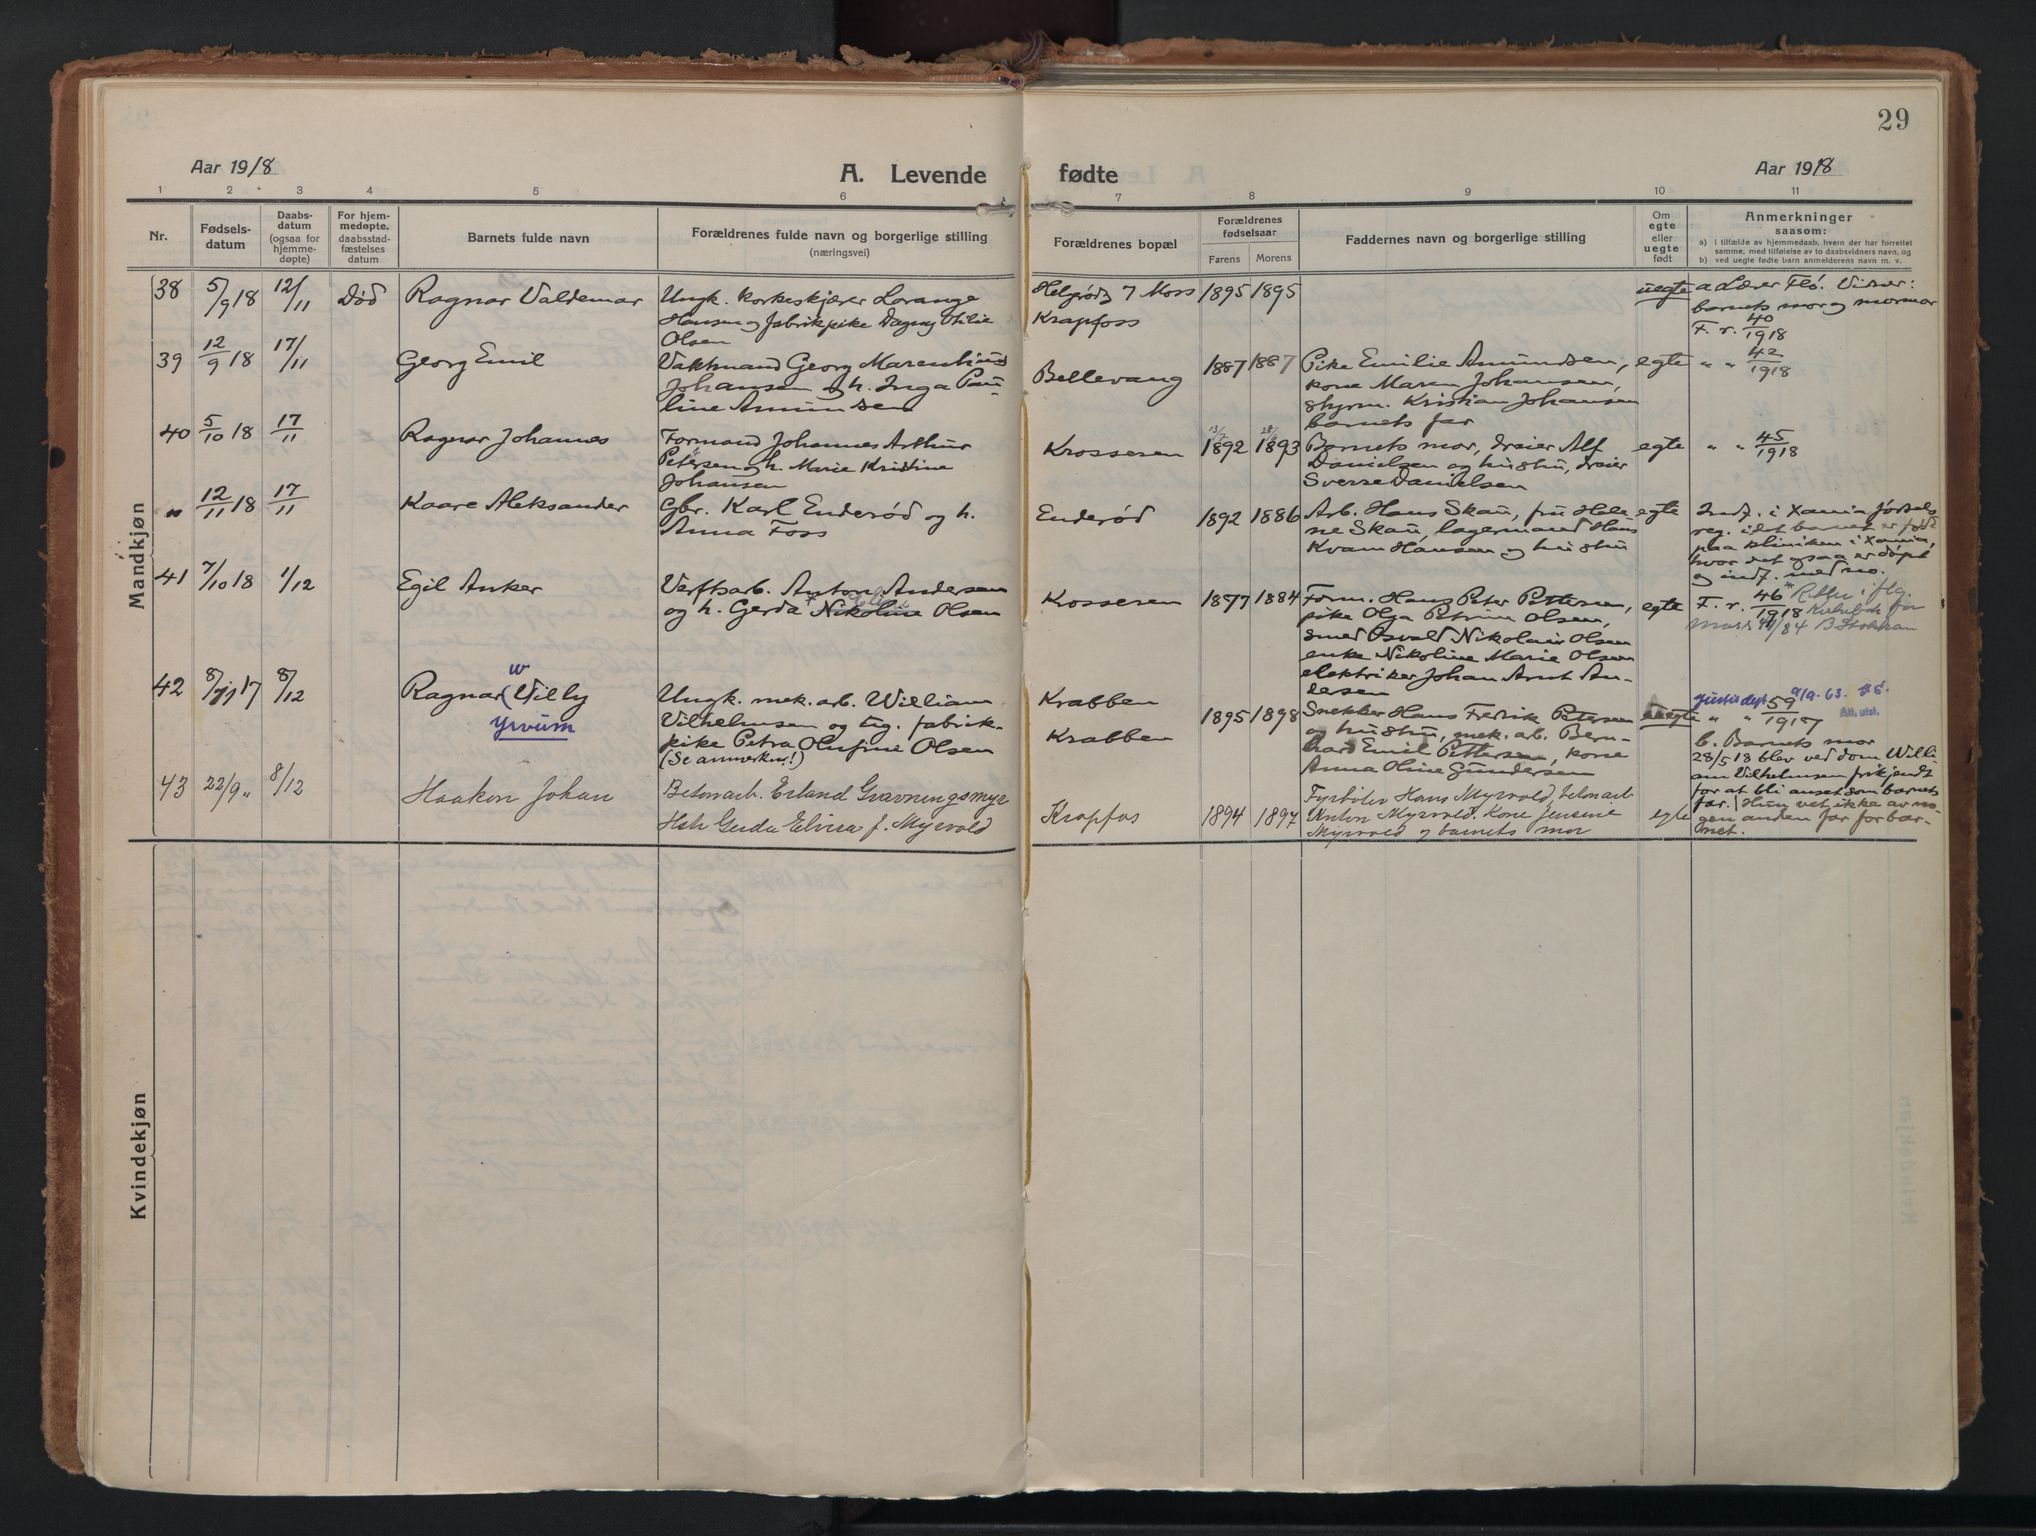 29
Aar 1918
A. Levende fødte
Aar 1918
1 2 3 4 5 6 7 8 9 10 11
Nr.
Fødsels-
datum
Daabs-
datum
(ogsaa for
hjemme-
døpte)
For hjem-
medøpte,
daabsstad-
fæstelses
datum
Barnets fulde navn
Forældrenes fulde navn og borgerlige stilling
(næringsvei)
Forældrenes bopæl
Forældrenes
fødselsaar
Farens Morens
Faddernes navn og borgerlige stilling
Om
egte
eller
uegte
født
Anmerkninger
saasom:
a) i tilfælde av hjemmedaab, hvem der har forrettet
samme, med tilføielse av to daabsvidners navn, og
b) ved uegte fødte barn anmelderens navn m. v.
Mandkjøn
38 5/9 18 12/11 Død Ragnar Valdemar
Ungk. korkeskjærer Lorange
Hansen og fabrikpike Dagny Otilie
Olsen
Helgerød 7 Moss
Krapfoss
1895 1895
uegte
a Lærer Flø. Vidner:
barnets mor og mormor
F. r. 40/1918
39 12/9 18 17/11 Georg Emil
Vaktmand Georg Marentius
Johansen og h. Inga Pau-
line Amundsen
Bellevang
1887 1887
Pike Emilie Amundsen,
kone Maren Johansen,
styrm. Kristian Johansen
barnets far
egte
" " 42/1918
40 5/10 18 17/11 Ragnar Johannes
Formand Johannes Arthur
Petersen og h. Marie Kristine
Johansen
Krosseren
1892 1893
Barnets mor, dreier Alf
Danielsen og hustru, dreier
Sverre Danielsen
egte
" " 45/1918
" 12/11 18 17/11 Kaare Aleksander
Gbr. Karl Enderød og h.
Anna Foss
Enderød
1892 1886
Arb. Hans Skau, fru Hele-
ne Skau, lagermand Hans
Kvam Hansen og hustru
egte
Indf. i Xania fødsels
reg. idet barnet er født
paa kliniken i Xania,
hvor det ogsaa er døpt
og indf. med no.
41 7/10 18 1/12 Egil Anker
Verftsarb. Anton Andersen
og h. Gerda * Nikoline Olsen
Krosseren
1877 1884
Form. Hans Peter Pettersen,
pike Olga Petrine Olsen,
smed Osvald Nikolai Olsen
enke Nikoline Marie Olsen
elektriker Johan Arnt An-
dersen
egte
F. r. 46/1918 * Rettet i flg.
Kirkebok for
Moss /84 B Stokkan
42 8/11 17 8/12 Ragnar (Villy
W
Yrvum
Ungk. mek. arb. William
Vilhelmsen og ug. fabrik-
pike Petra Olufine Olsen
(Se anmerkn.!)
Krabben
Krabben
1895 1898
Snekker Hans Fredrik Petersen
og hustru, mek. arb. Bern-
hard Emil Pettersen, kone
Anna Oline Gundersen
uegte
Justisdept 9/9. 63.
Att. utst.
" " 59/1917
b. Barnets mor
28/5 18 blev ved dom Willi-
am Vilhelmsen frikjendt
for at bli anset som barnets
far. Hun vet ikke av no-
gen anden far for bar-
net.
43 22/9 " 8/12 Haakon Johan
Betonarb. Erland Gravningsmyr
Hstr Gerda Elvira f. Myrvold
Krapfos
1894 1897
Fyrbøter Hans Myrvold, betonarb
Anton Myrvold. Kone Jensine
Myrvold og barnets mor
egte
Kvindekjøn